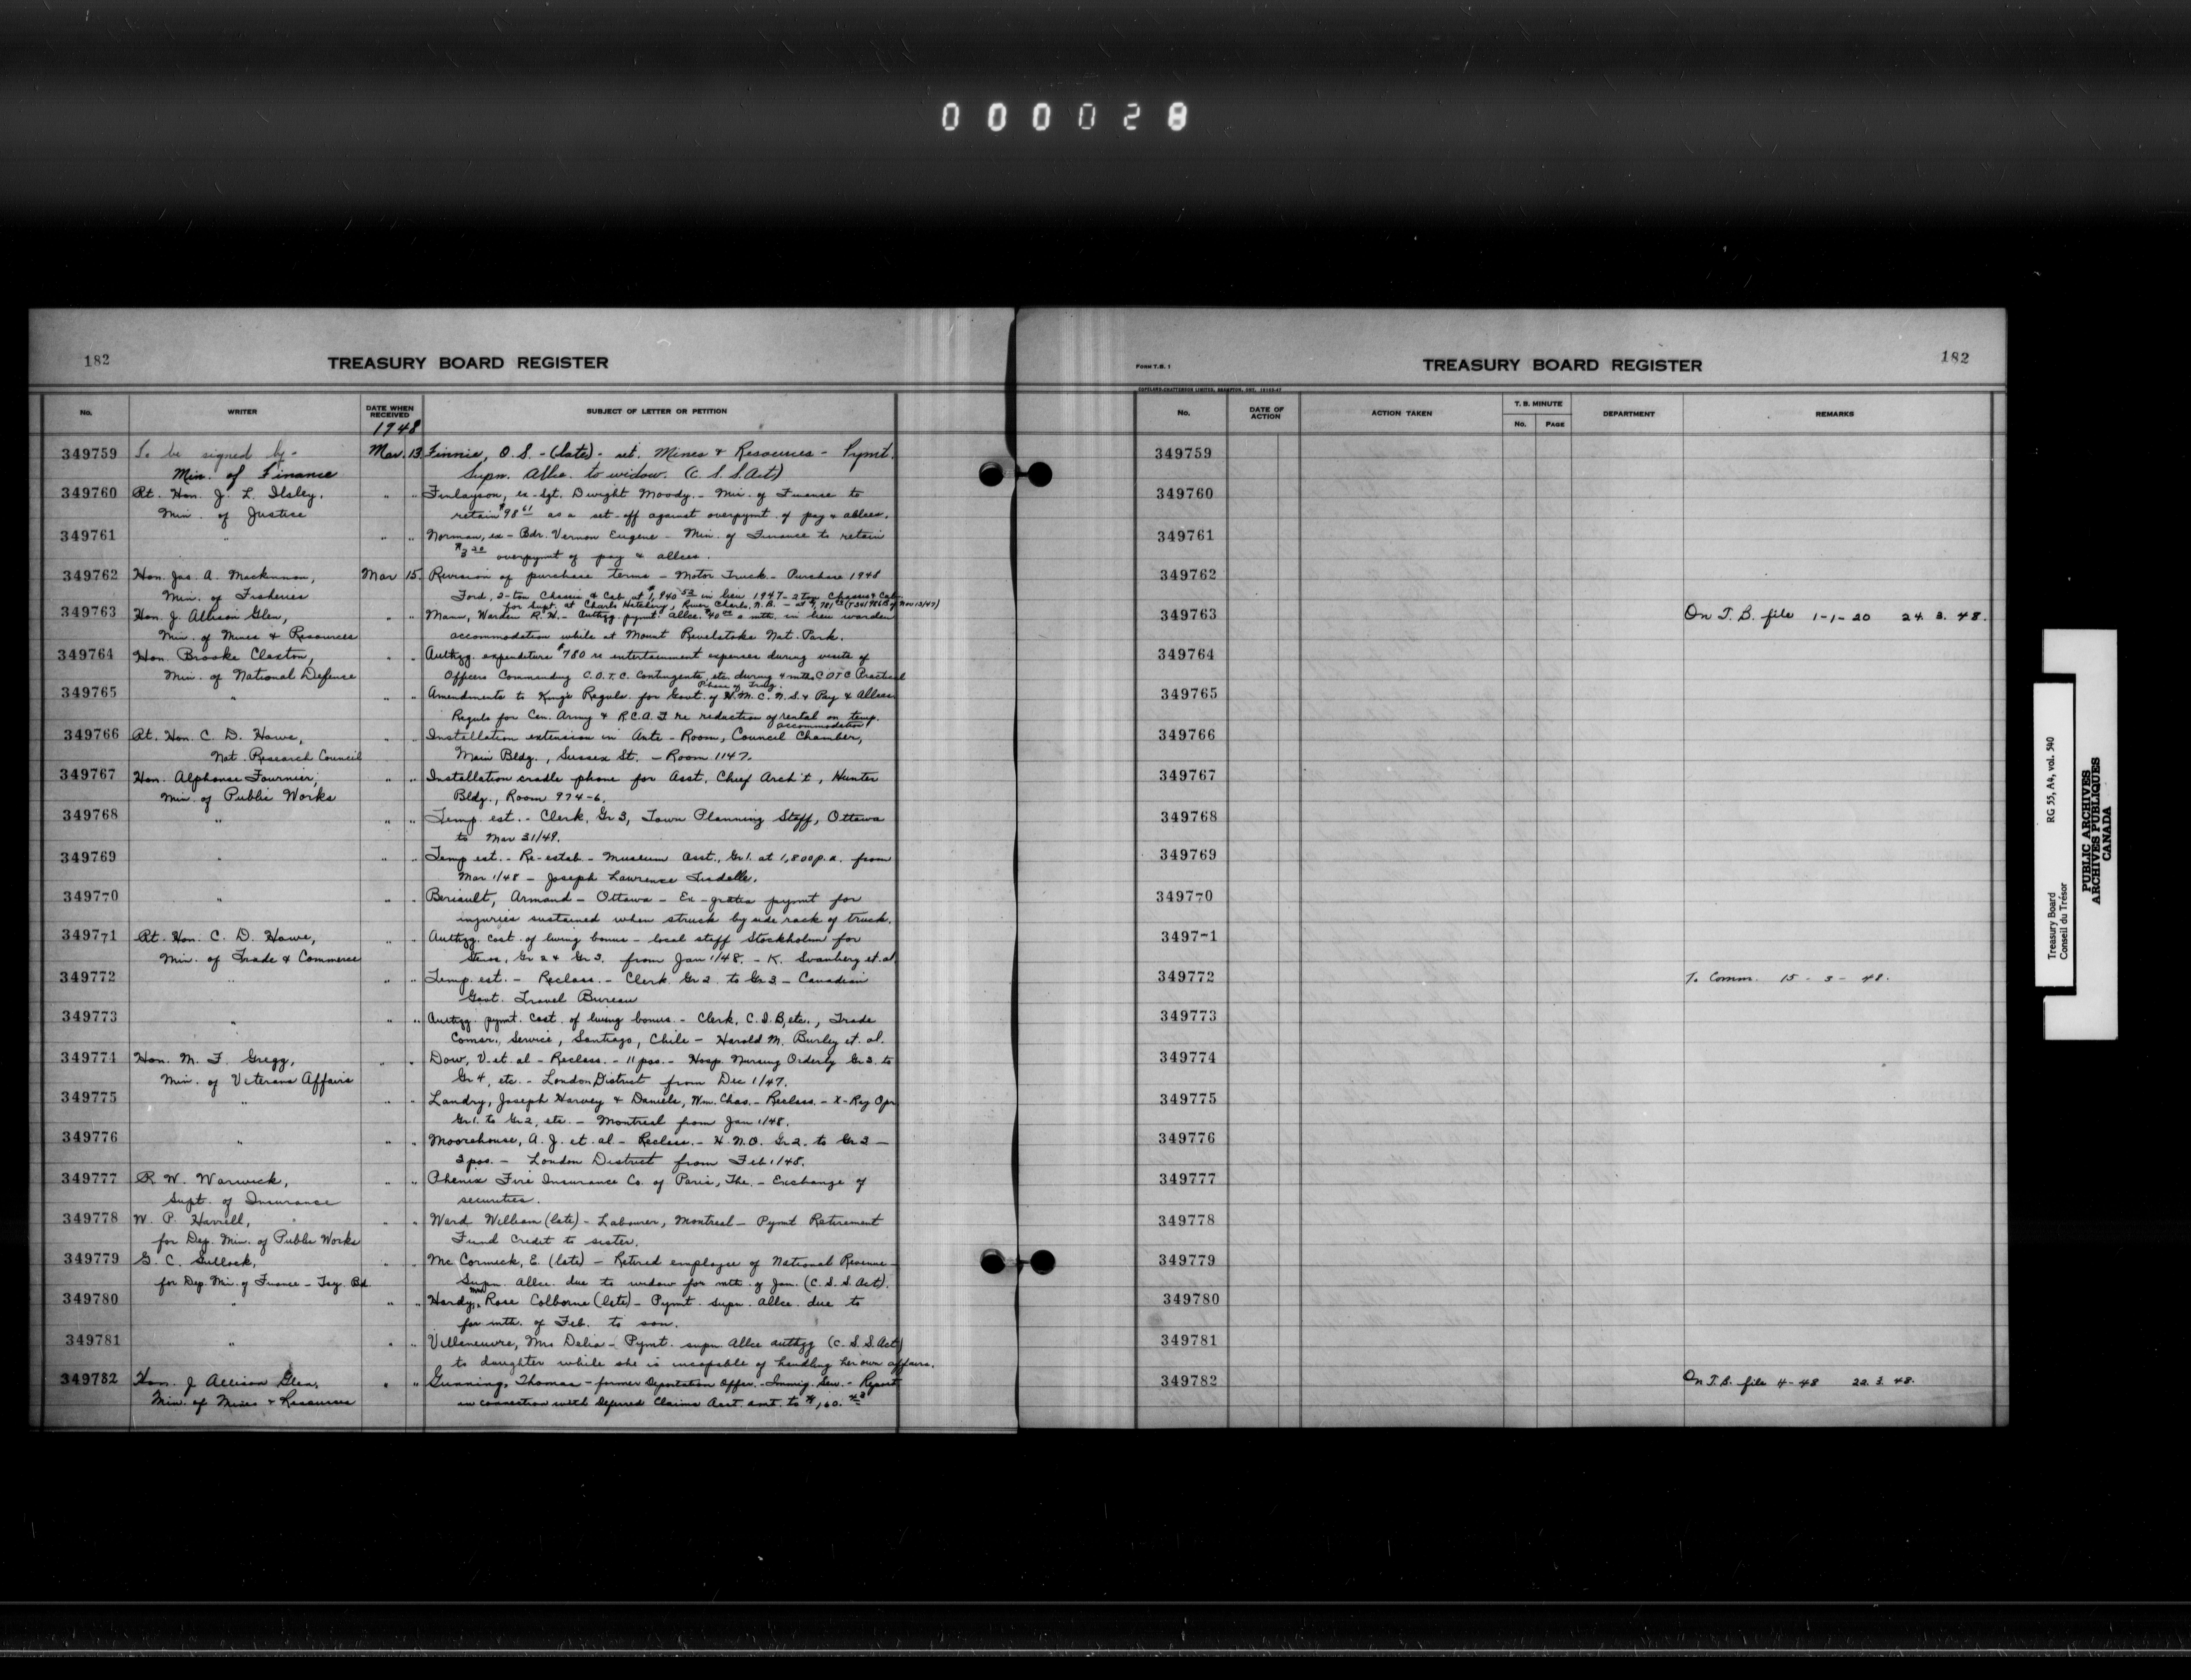 000028
182
TREASURY BOARD REGISTER
No.
WRITER
DATE WHEN RECEIVED
SUBJECT OF LETTER OR PETITION
1948
349759 To be signed by - Mar. 13 Finnie, O. S. - (late) - ret. Mines & Resources - Pymt.
Min. of Finance Supn. Allce. to widow. (C. S. S. Act)
349760 Rt. Hon. J. L. Ilsley, " " Finlayson, ex-Sgt. Dwight Moody. - Min. of Finance to
Min. of Justice retain $98 61 as a set-off against overpymt. of pay & allces.
349761 " " " Norman, ex-Bdr. Vernon Eugene - Min. of Finance to retain
overpymt of pay & allces.
349762 Hon. Jas. A. Mackinnon, Mar 15. Revision of purchase terms - Motor Truck - Purchase 1948
Min. of Fisheries Ford, 2-ton Chassis & Cab at $1,940 52 in lieu 1947 - 2 ton Chassis & Cab.
for Supt. at Charlo Hatchery, River Charlo, N.B. - at
349763 Hon. J. Allison Glen, " " Mann, Warden R. H. - Authzg. pymt. allce. $40 00 a mth. in lieu warden
Min. of Mines & Resources accommodation while at Mount Revelstoke Nat. Park.
349764 Hon. Brooke Claxton, " " Authzg. expenditure $780 re entertainment expenses during visits of
Min. of National Defense Officers Commanding C.O.T.C. Contingents, etc. during 4 mths. COTC Practical
Phase of Trng.
349765 " " " Amendments to King's Reguls. for Govt. of H.M.C.N.S. & Pay & Allces
Reguls for Can. Army & R.C.A.F re reduction of rental on temp.
accommodation
349766 Rt. Hon. C. D. Howe, " " Installation extension in Ante-Room, Council Chamber,
Nat. Research Council Main Bldg., Sussex St. - Room 1147.
349767 Hon. Alphonse Fournier, " " Installation cradle phone for Asst. Chief Arch't, Hunter
Min. of Public Works Bldg., Room 974-6.
349768 " " " Temp. est. - Clerk, Gr 3, Town Planning Staff, Ottawa
to Mar 31/49.
349769 " " " Temp est. - Re-estab. - Museum Asst., Gr 1. at 1,800 p.a. from
Mar 1/48 - Joseph Lawrence
349770 " " " Beriault, Armand - Ottawa - Ex-gratia pymt for
injuries sustained when struck by side rack of truck.
349771 Rt. Hon. C. D. Howe, " " Authzg. cost of living bonus - local staff Stockholm for
Min. of Trade & Commerce Stenos, Gr 2 & Gr 3. from Jan 1/48. - K. Svanberg et. al
349772 " " " Temp. est. - Reclass. - Clerk Gr 2. to Gr 3 - Canadian
Govt. Travel Bureau
349773 " " " Authzg. pymt. cost of living bonus. - Clerk, C.I.B, etc., Trade
Comsr., Service, Santiago, Chile - Harold M. Burley et. al.
349774 Hon. M. F. Gregg, " " Dow, V. et. al - Reclass. - 11 pos. - Hosp. Nursing Orderly Gr 3. to
Min. of Veterans Affairs Gr 4, etc. - London District from Dec 1/47.
349775 " " " Landry, Joseph Harvey & Daniels, Wm. Chas. - Reclass. - X-Ray Opr
Gr 1. to Gr 2, etc. - Montreal from Jan 1/48.
349776 " " " Moorehouse, A. J. et. al - Reclass. - H.N.O. Gr 2. to Gr 3 -
3 pos. - London District from Feb 1/48.
349777 R. W. Warwick, " " Phenix Fire Insurance Co. of Paris, The. - Exchange of
Supt. of Insurance securities.
349778 W. P. Harrell, " " Ward William (late) - Labourer, Montreal - Pymt Retirement
for Dep. Min. of Public Works Fund Credit to sister.
349779 G. C. " " McCormick, E. (late) - Retired employee of National Revenue -
for Dep. Min. of Finance - Tsy. Bd. Supn. allce. due to widow for mth. of Jan. (C. S. S. Act).
349780 " " " Hardy, Mrs Rose Colborne (late) - Pymt. supn. allce. due to
for mth. of Feb. to son.
349781 " " " Villeneuve, Mrs Delia - Pymt. supn. Allce authzg (C. S. S. Act)
to daughter while she is incapable of handling her own affairs.
349782 Hon. J Allison Glen, " " Gunning, Thomas - former Deportation Offcr. - Immig. Serv. - Report
Min. of Mines & Resources in connection with Deferred Claims Acct. amt. to
FORM T.B. 1
TREASURY BOARD REGISTER
182
No.
DATE OF ACTION
ACTION TAKEN
T. B. MINUTE
No.
PAGE
DEPARTMENT
REMARKS
349759
349760
349761
349762
349763 On T.B. file 1-1-20 24. 3. 48.
349764
349765
349766
349767
349768
349769
349770
349771
349772 To Comm. 15 - 3 - 48.
349773
349774
349775
349776
349777
349778
349779
349780
349781
349782 On T.B. file 4-48 22. 3. 48.
Treasury Board
Conseil du Trésor
RG 55, A4, vol. 540
PUBLIC ARCHIVES
ARCHIVES PUBLIQUES
CANADA